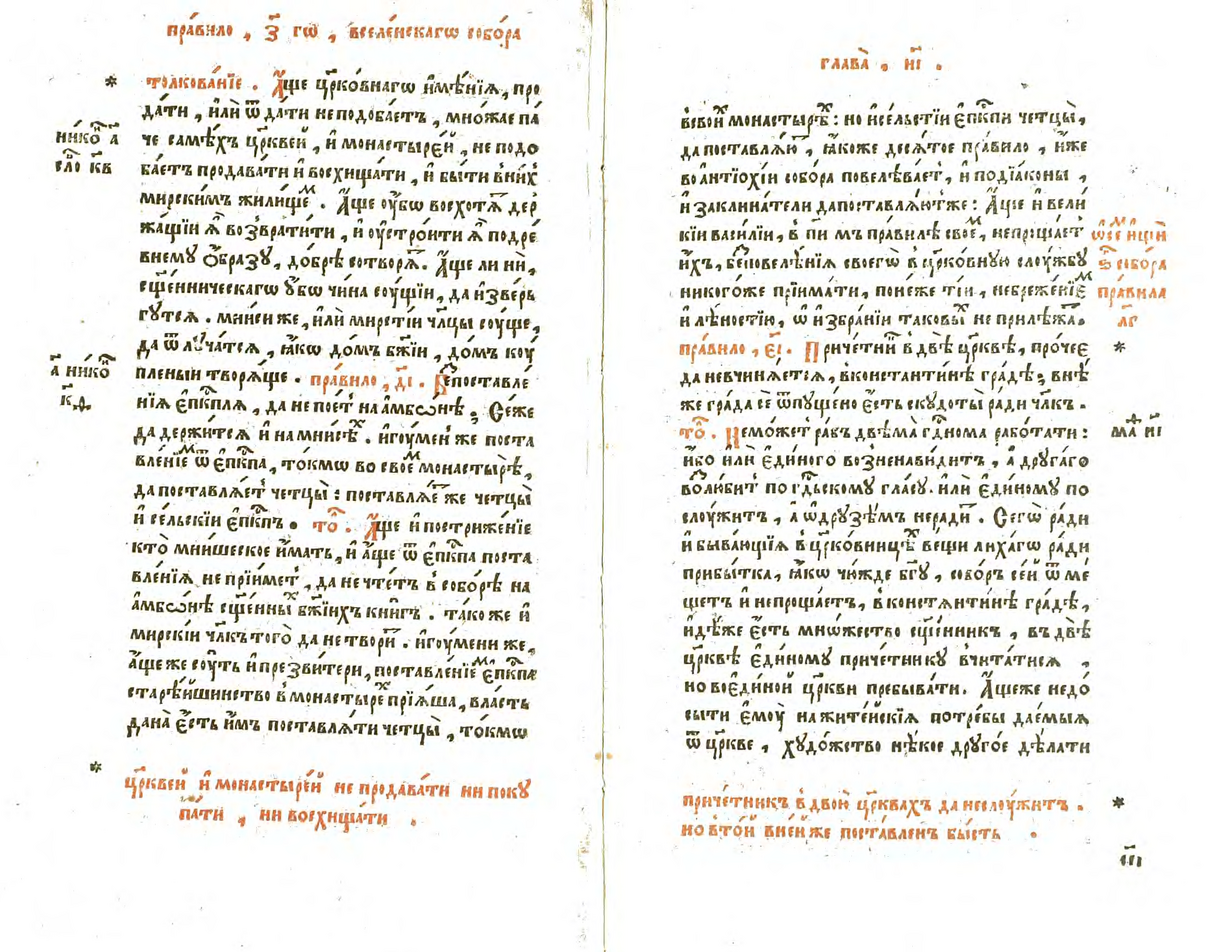 пра́вило , з҃ гѡ , вселе́нскагѡ собо́ра
* толкова́нїе . А҆́ще цр҃ко́внагѡ и҆мѣ́нїѧ, про
да́ти , и҆лѝ ѿда́ти неподоба́етъ , мно́жае па́
нико҇́ а҃
че самѣ́хъ цр҃кве́й , и҆ монастыре́й , не подо
сло҇́ к҃в
ба́етъ продава́ти и҆ восхища́ти , и҆ бы́ти вни́х
мирски́мъ жили́щеⷨ . А҆́ще ᲂу҆́бѡ восхотѧ́т дер
жа́щїи ѧ҆̀ возврати́ти , и҆ ᲂу҆стро́ити ѧ҆̀ подре́
внему ѻ҆́бразу , до́брѣ сотворѧ́т . А҆́ще ли нѝ ,
сщ҃е́нническагѡ ᲂу҆́бѡ чина соу́щїи , да и҆зве́рь
гутсѧ . мни́си же , и҆лѝ мирсті́и чл҃цы соу́ще ,
да ѿлуча́тсѧ , ꙗ҆́кѡ до́мъ бж҃їи , до́мъ коу́
а҃ нико҇́
пленый творѧ́ще . пра́вило , д҃і . Беⷥпоставле́
к҃д
нїѧ є҆пⷭ҇кплѧ , да не пое́т на а҆мбѡ́нѣ ; Се́же
да держи́тсѧ и҆ на мни́сѣⷯ . и҆гоу́мен же поста
вле́нїеⷨ ѿ є҆пⷭ҇кпа , то́кмѡ во свое́ⷨ монастырѣ̀ ,
да поставлѧ́ет четцы̀ : поставлѧ́еⷮ же четцы̀
и҆ се́льскїи є҆пⷭ҇кпъ . то҇́ . А҆́ще и҆ постриже́нїе
кто̀ мни́шеское и҆́мать , и҆ а҆́ще ѿ є҆пⷭ҇кпа поста
вле́нїѧ не прїи́мет , да не чте́тъ в собо́рѣ на
а҆мбѡ́нѣ сщ҃е́нныⷯ бж҃їихъ кни́гъ . та́ко же и҆
мирскі́и чл҃къ того̀ да не твори́т . и҆гоу́мени же ,
а҆́ще же соу́ть и҆ презви́тери , поставле́нїеⷨ є҆пⷭ҇кпа
старѣ́йшинство в монастыреⷯ прїѧ́ша , вла́сть
дана̀ є҆́сть и҆́мъ поставлѧ́ти четцы̀ , то́кмѡ
* цр҃кве́й и҆ монастыре́й не продава́ти ни поку
па́ти , ни восхища́ти .
глава̀ . и҃і .
всвои́х монастырѣ́ⷯ : но и҆ се́льстїи є҆пⷭ҇кпи четцы̀ ,
да поставлѧ́юⷮ , ꙗ҆́коже десѧ́тое пра́вило , и҆́же
во а҆нтїохі́и собо́ра повелѣва́ет , и҆ подїа́коны ,
и҆ заклина́тели да поставлѧ́ютже : А҆́ще и҆ вели́
кїи васи́лїи , в п҃и мъ пра́вилѣ свое́ⷨ , непроща́ет
и҆́хъ , беⷥповелѣ́нїѧ своегѡ̀ в цр҃ко́вную слоу́жбу
ѕ҃ собо́ра
никого́же прїима́ти , поне́же ті́и , небреже́нїеⷨ
пра́вила
и҆ лѣ́ностїю , ѡ҆ и҆збра́нїи таковы́х не прилѣжа́т .
л҃г
пра́вило , є҃і . Приче́тник в двѣ̀ цр҃квѣ , про́чее *
да невчинѧ́етсѧ , в константи́нѣ гра́дѣ ; внѣ́
же гра́да сѐ ѿпуще́но є҆́сть скудо́ты ра́ди чл҃къ .
то҇́ . Не мо́жет ра́бъ двѣ́ма гдⷭ҇нома рабо́тати :
мⷴ҇а и҃і
и҆́бо и҆лѝ є҆ди́ного возненави́дитъ , а҆ друга́го
возлю́бит по гдⷭ҇ьскому гла́су . и҆лѝ є҆ди́ному по
слоу́житъ , а҆ ѡ҆друзѣ́мъ неради́т . Сегѡ̀ ра́ди
и҆ быва́ющїѧ в цр҃ко́вницѣⷯ ве́щи лиха́гѡ ра́ди
прибы́тка , ꙗ҆́кѡ чю́жде бг҃у , собо́ръ се́й ѿме́
щетъ и҆ непроща́етъ , в констѧнти́нѣ гра́дѣ ,
и҆дѣ́же є҆́сть мнѡ́жество сщ҃е́нникъ , въ двѣ̀
цр҃квѣ є҆ди́ному приче́тнику вчита́тисѧ ,
но воє҆ди́ной цр҃кви пребыва́ти . А҆́щеже недо́
сыти є҆моу̀ на жите́йскїѧ потре́бы дае́мыѧ
ѿ цр҃кве , худо́жство нѣ́кое друго́е дѣ́лати
приче́тникъ в двою̀ цр҃квахъ да неслоу́житъ . *
но в то́й в не́й же поста́вленъ бы́сть .